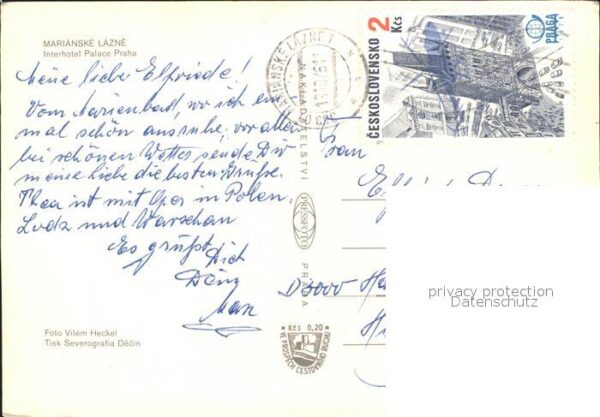 MARIÁNSKÉ LÁZNĚ
Interhotel Palace Praha
Meine liebe Elfriede!
Vom Marienbad, wo ich ein
mal schön ausruhe, vor allem
bei schönen Wetter sende Dir
meine liebe die besten Grüße.
Thea ist mit Oper in Polen.
Lodz und Warschau
Es grüßt
Dich
Max
Foto Vilém Heckel
Tisk Severografia Děčín
MARIÁNSKÉ LÁZNĚ 1
NAKLADATELSTVÍ
PRESSFOTO
PRAHA
Kčs 0,20
VE PROSPĚCH CESTOVNÍHO RUCHU
ČESKOSLOVENSKO
2 Kčs
PRAGA
Frau
D3000 Ha
privacy protection
Datenschutz